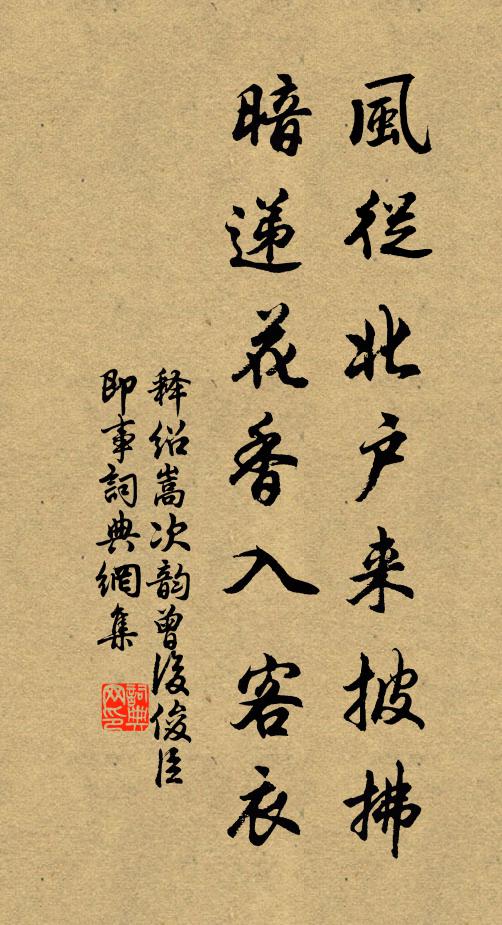 風從北户来披拂
暗递花香入客衣
释绍嵩次韵曾浚俊臣
即事詞典網集
詞典网印